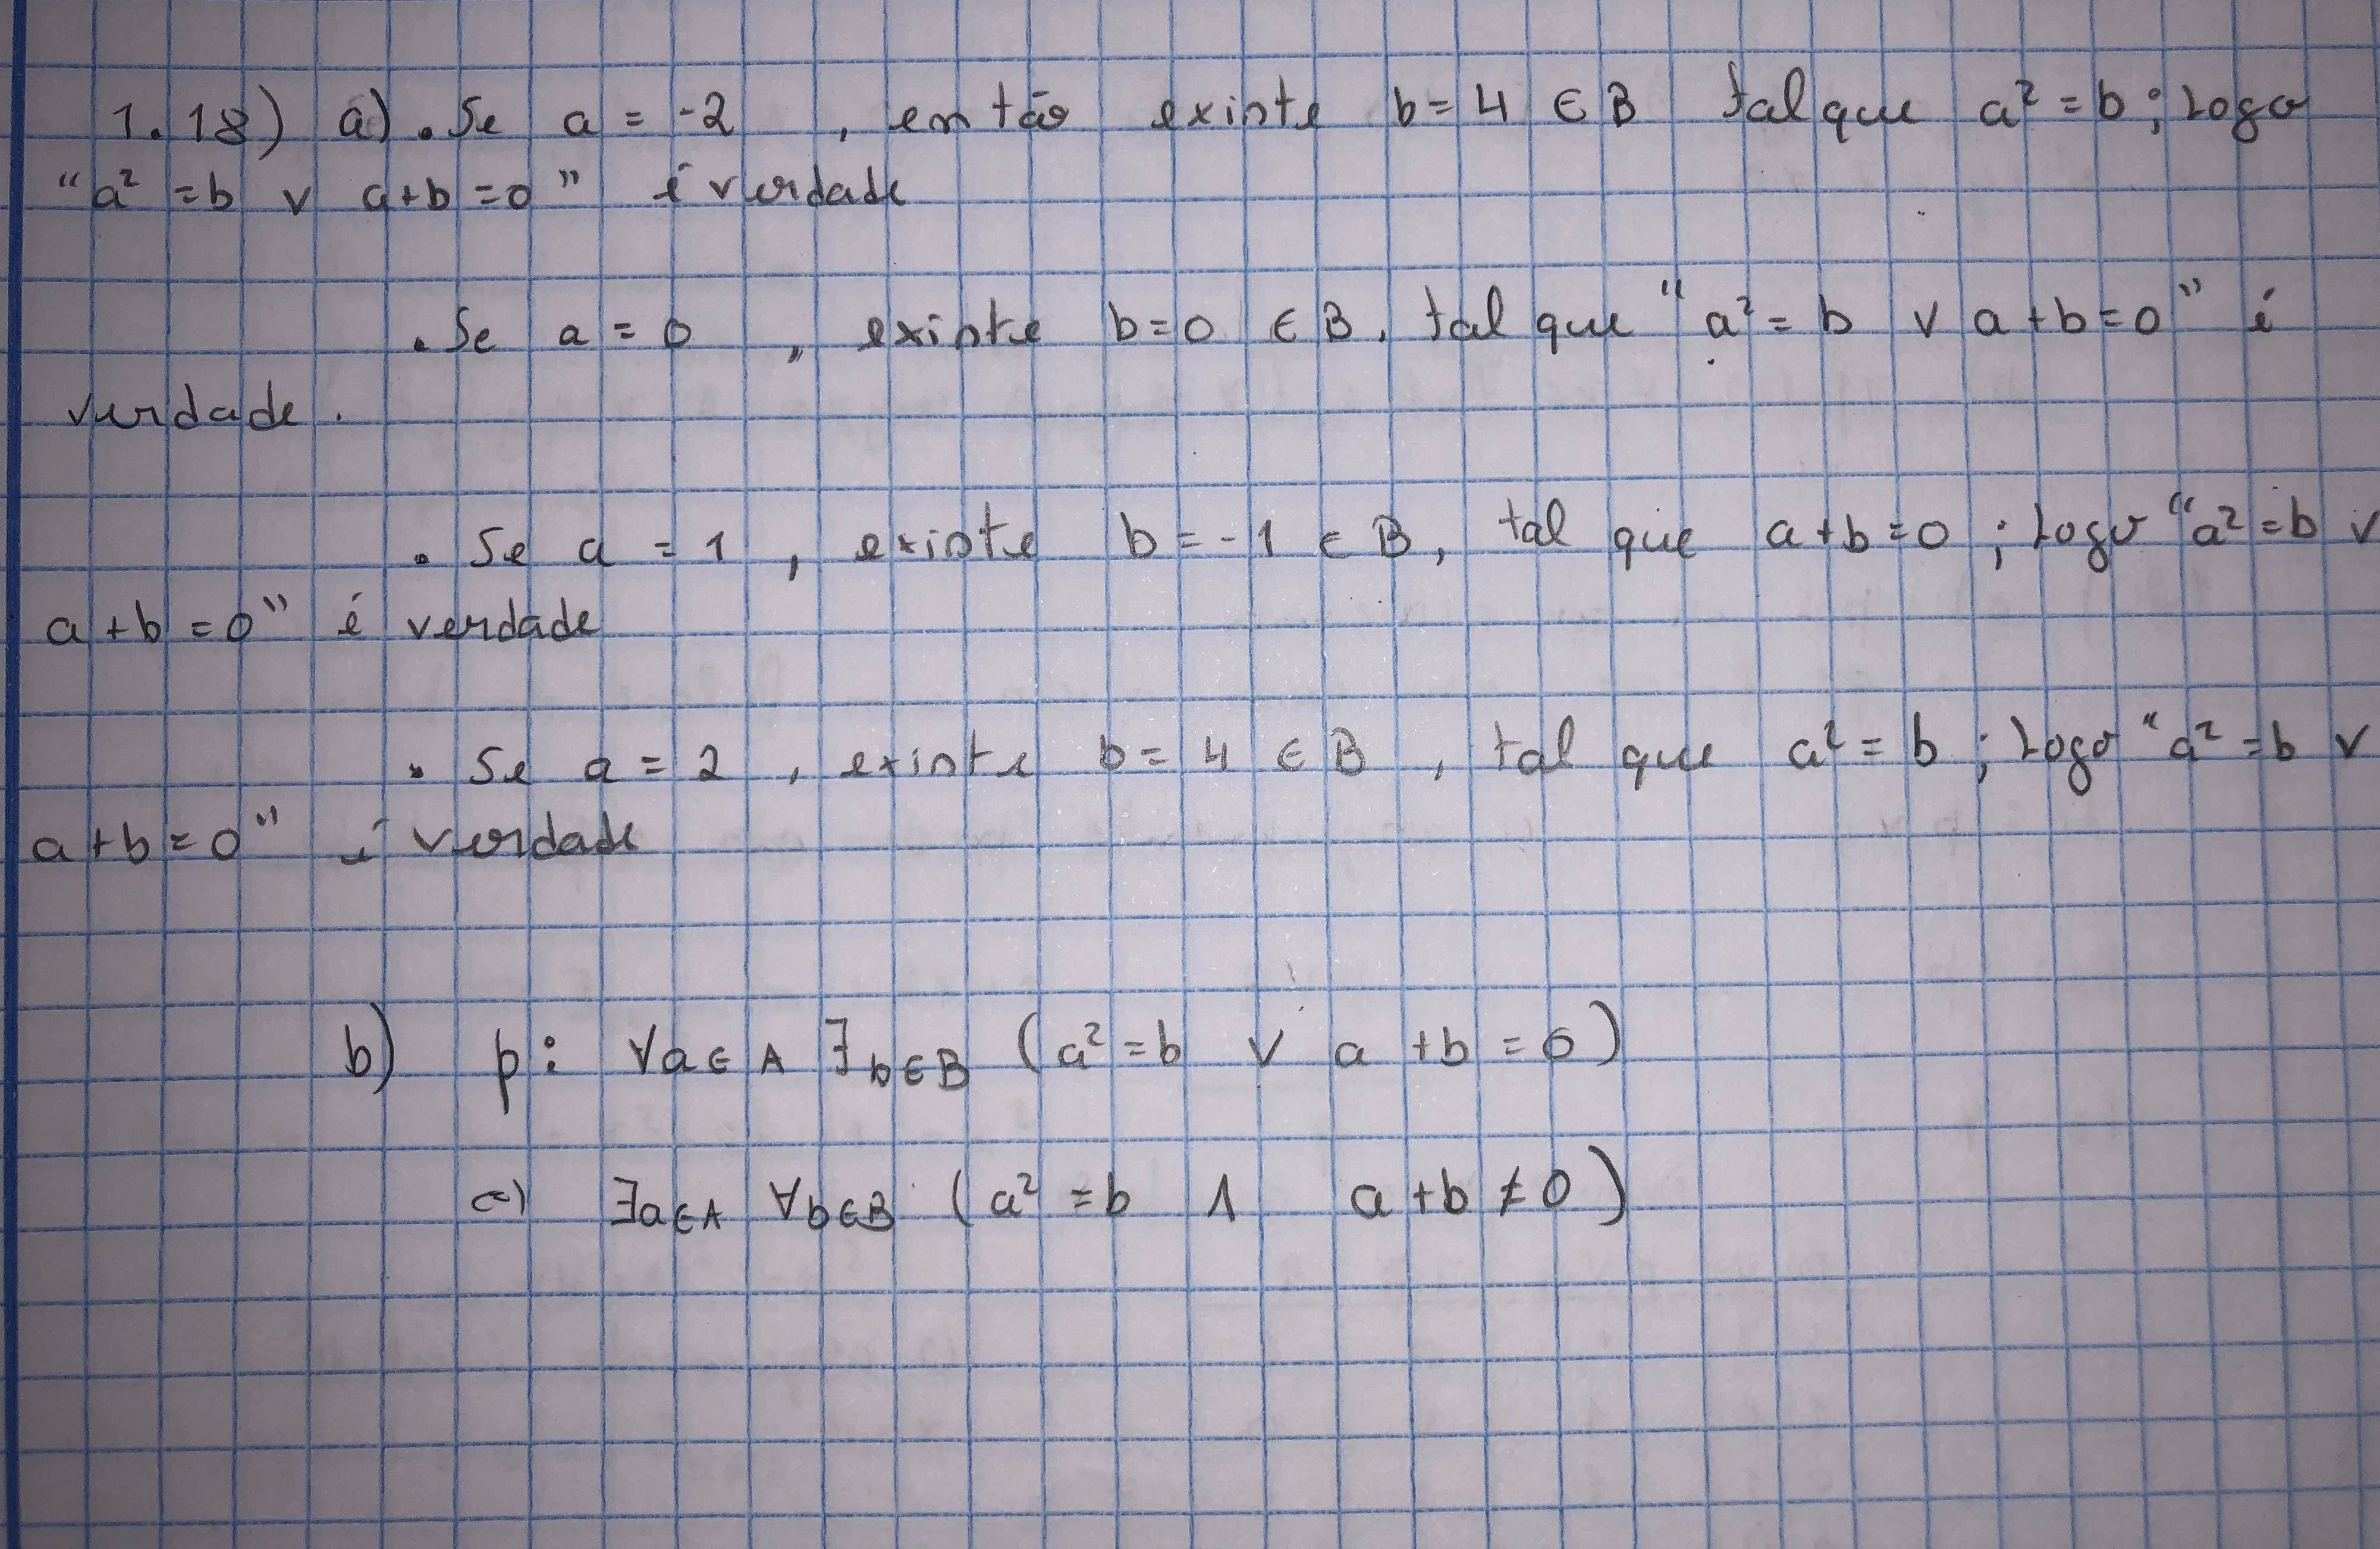 1.18) a) • Se a = -2 , então existe b = 4 ∈ B tal que a² = b ; Logo
“a² = b ∨ a+b = 0” é verdade
• Se a = 0 , existe b = 0 ∈ B , tal que “a² = b ∨ a+b = 0” é
verdade .
• Se a = 1 , existe b = -1 ∈ B , tal que a+b = 0 ; Logo “a² = b ∨
a+b = 0” é verdade
• Se a = 2 , existe b = 4 ∈ B , tal que a² = b ; Logo “a² = b ∨
a+b = 0” é verdade
b) p: ∀a∈A ∃b∈B (a² = b ∨ a+b = 0)
c) ∃a∈A ∀b∈B (a² = b ∧ a+b ≠ 0)